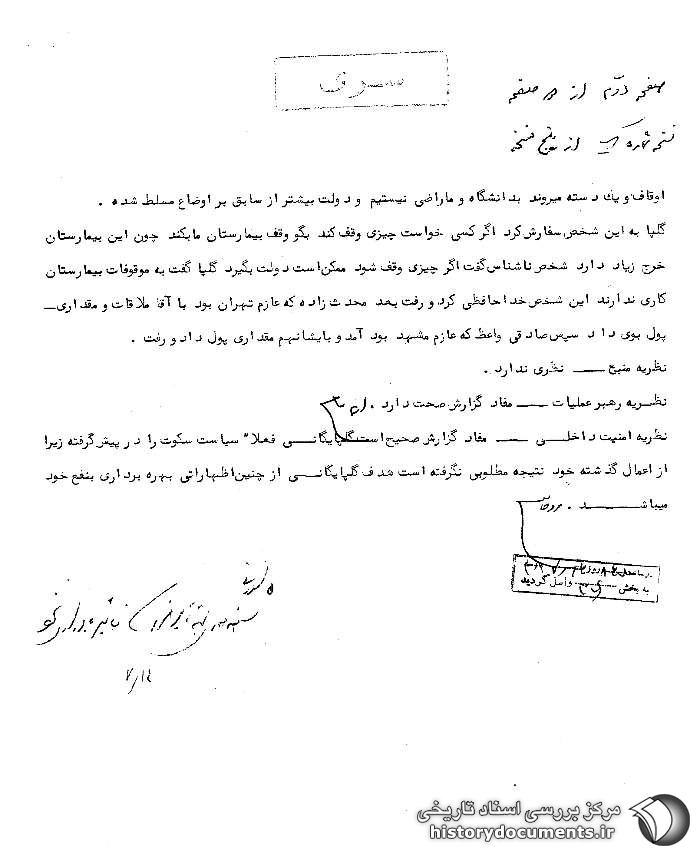 سری
صفحه دوم از ۵ صفحه
نسخه شماره یک از پنج نسخه
اوقاف و یک دسته میروند بدانشگاه و ماراضی نیستیم و دولت بیشتر از سابق بر اوضاع مسلط شده .
گلپا به این شخص سفارش کرد اگر کسی خواست چیزی وقف کند بگو وقف بیمارستان مابکند چون این بیمارستان
خرج زیاد دارد شخص ناشناس گفت اگر چیزی وقف شود ممکن است دولت بگیرد گلپا گفت به موقوفات بیمارستان
کاری ندارند این شخص خداحافظی کرد و رفت بعد محدث زاده که عازم تهران بود با آقا ملاقات و مقداری ــ
پول بوی داد سپس صادقی واعظ که عازم مشهد بود آمد و بایشانهم مقداری پول داد و رفت .
نظریه منبع ـــ نظری ندارد .
نظریه رهبر عملیات ـــ مفاد گزارش صحت دارد .
نظریه امنیت داخلی ـــ مفاد گزارش صحیح است گلپایگانی فعلا" سیاست سکوت را در پیش گرفته زیرا
از اعمال گذشته خود نتیجه مطلوبی نگرفته است هدف گلپایگانی از چنین اظهاراتی بهره برداری بنفع خود
میباشد .
به بخش واصل گردید
مرکز بررسی اسناد تاریخی
historydocuments.ir